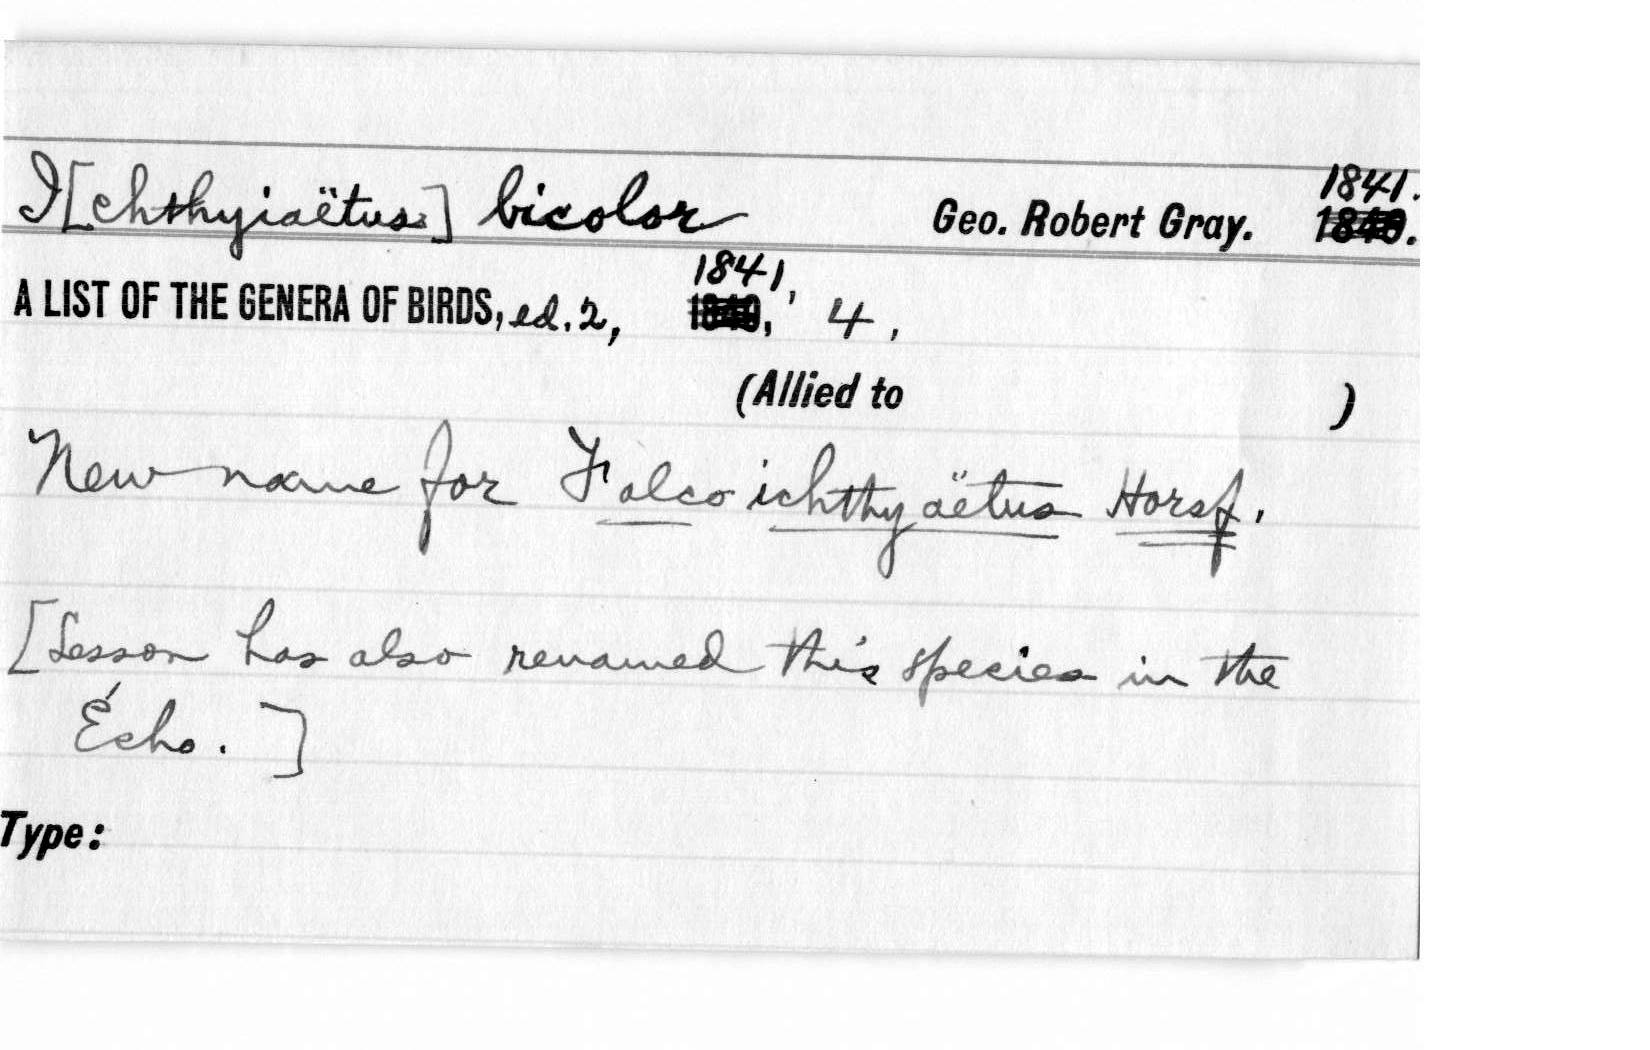 I[chthyiaëtus] bicolor Geo. Robert Gray. 1841.
1840.
A LIST OF THE GENERA OF BIRDS, ed. 2, 1841, 4,
1840,
(Allied to )
New name for Falco ichthyaëtus Horsf.
[Lesson has also renamed this species in the
Écho.]
Type: